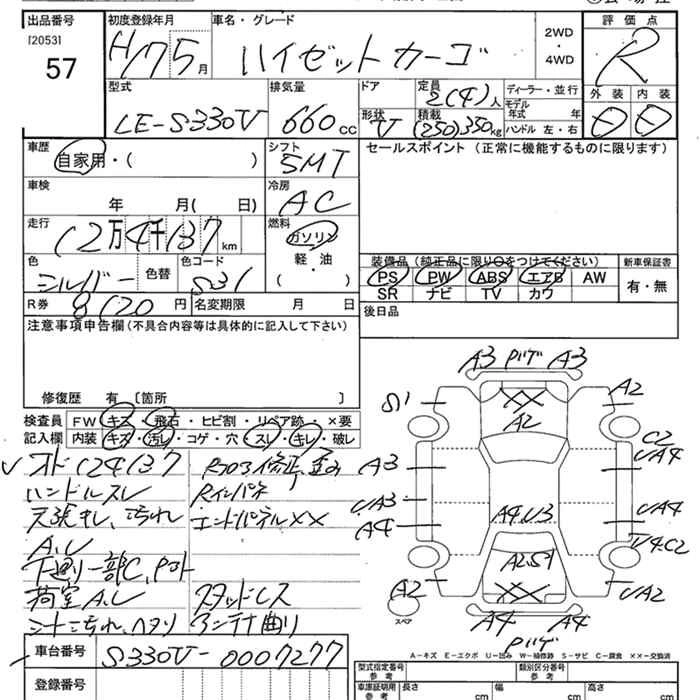 出品番号
[2053]
57
初度登録年月
H17 5月
車名・グレード
ハイゼットカーゴ
2WD
・
4WD
評価点
R
外装 内装
型式
LE-S330V
排気量
660 cc
ドア
形状
V
定員
2(4)人
積載
(250)350kg
ディーラー・並行
モデル
年式 年
ハンドル 左・右
車歴
自家用・( )
シフト
5MT
セールスポイント (正常に機能するものに限ります)
車検
年 月( 日)
冷房
AC
走行
12万4千137km
燃料
ガソリン
軽・油
( )
色
シルバー
色替
色コード
S31
装備品 (純正品に限り○をつけてください)
新車保証書
PS PW ABS エアB AW
SR ナビ TV カワ
有・無
R券
8120円
名変期限 月 日
後日品
注意事項申告欄(不具合内容等は具体的に記入して下さい)
修復歴 有 [箇所 ]
検査員
記入欄
FW キズ・飛石・ヒビ割・リペア跡・×要
内装 キズ・汚レ・コゲ・穴・スレ・キレ・破レ
オド124137
ハンドルスレ
天張キレ、汚れ
A.U
下廻り一部C、P
荷室A.U
シート汚れ、ヘタリ
修正、歪み
Rインパネ
エンドパネル××
スタッドレス
アンテナ曲り
A3 A3
S1
A2
A2
A3
C2
UA4
UA3
A4
UA4
A4.U3
A2.S1
A2
UA2
A4 A4
スペア
A-キズ E-エクボ U-凹み W-補修跡 S-サビ C-腐食 ××-交換済
車台番号
S330V-0007277
登録番号
型式指定番号
参考
類別区分番号
参考
車庫証明用
参考
長さ cm
幅 cm
高さ cm